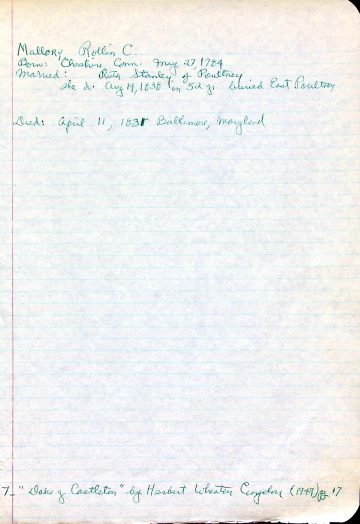 Mallory, Rollin C.
Born: Cheshire, Conn. May 27, 1784
Married: Ruth Stanley of Poultney
she d. Aug 19, 1838 in 52 yr. buried East Poultney
Died: April 11, 1831 Baltimore, Maryland
7- "Dake of Castleton" by Herbert Wheaton Congdon (1949) pg 17